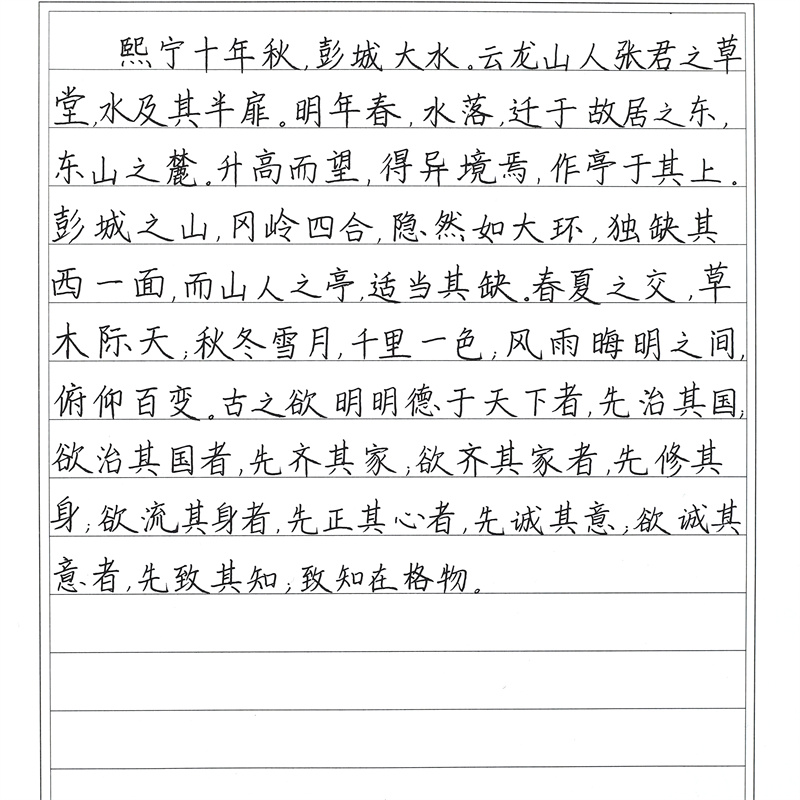 熙宁十年秋,彭城大水。云龙山人张君之草
堂,水及其半扉。明年春,水落,迁于故居之东,
东山之麓。升高而望,得异境焉,作亭于其上。
彭城之山,冈岭四合,隐然如大环,独缺其
西一面,而山人之亭,适当其缺。春夏之交,草
木际天;秋冬雪月,千里一色;风雨晦明之间,
俯仰百变。古之欲明明德于天下者,先治其国;
欲治其国者,先齐其家;欲齐其家者,先修其
身;欲流其身者,先正其心者,先诚其意;欲诚其
意者,先致其知;致知在格物。